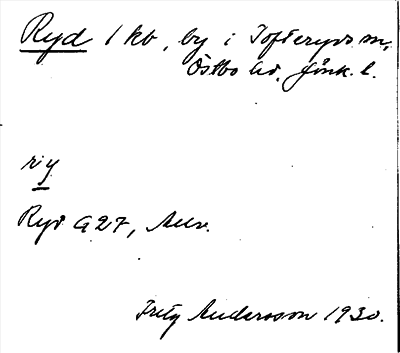 Ryd 1 kb, by i Tofteryds sn,
Östbo hd. Jönk. l.
ry
Ryd G27, Allm.
Fritz Andersson 1930.